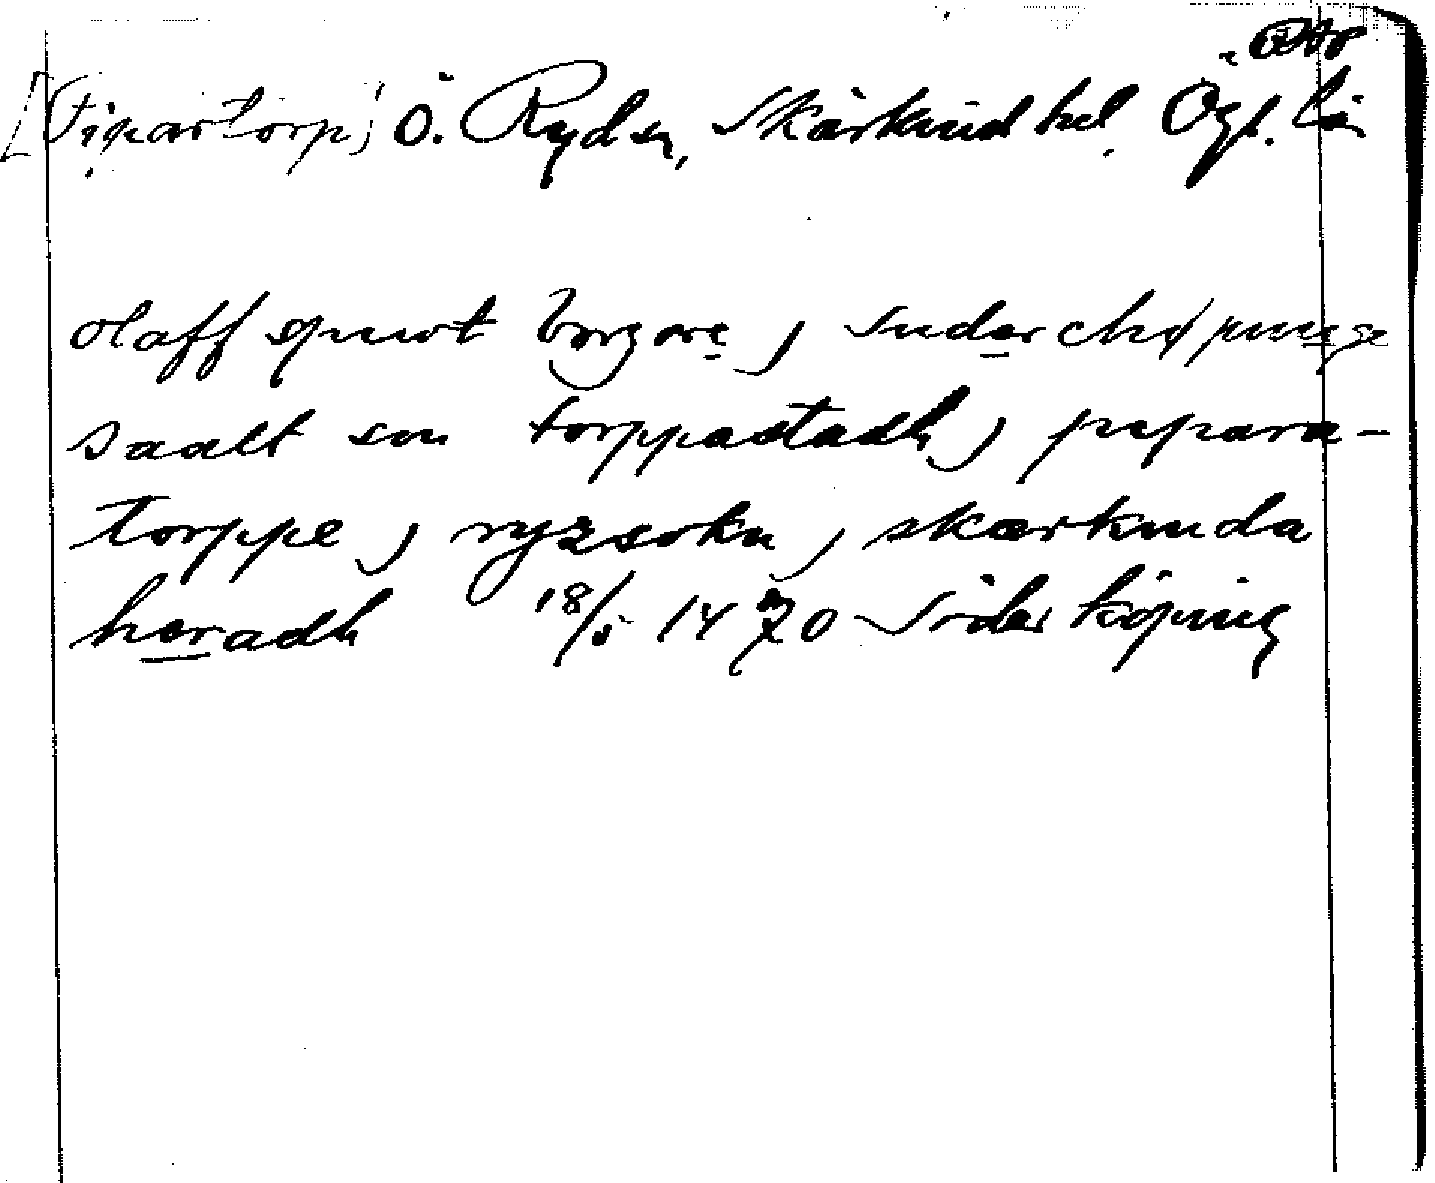 [Pipartorp] Ö. Ryd sn, Skärkind hd Ögl. län
olaff spurt borgare j suderchøpunge
saalt sin torppastadh j pipara-
torppe j ryzsokn j skærkinda
hæradh 18/5 1470 Söderköping